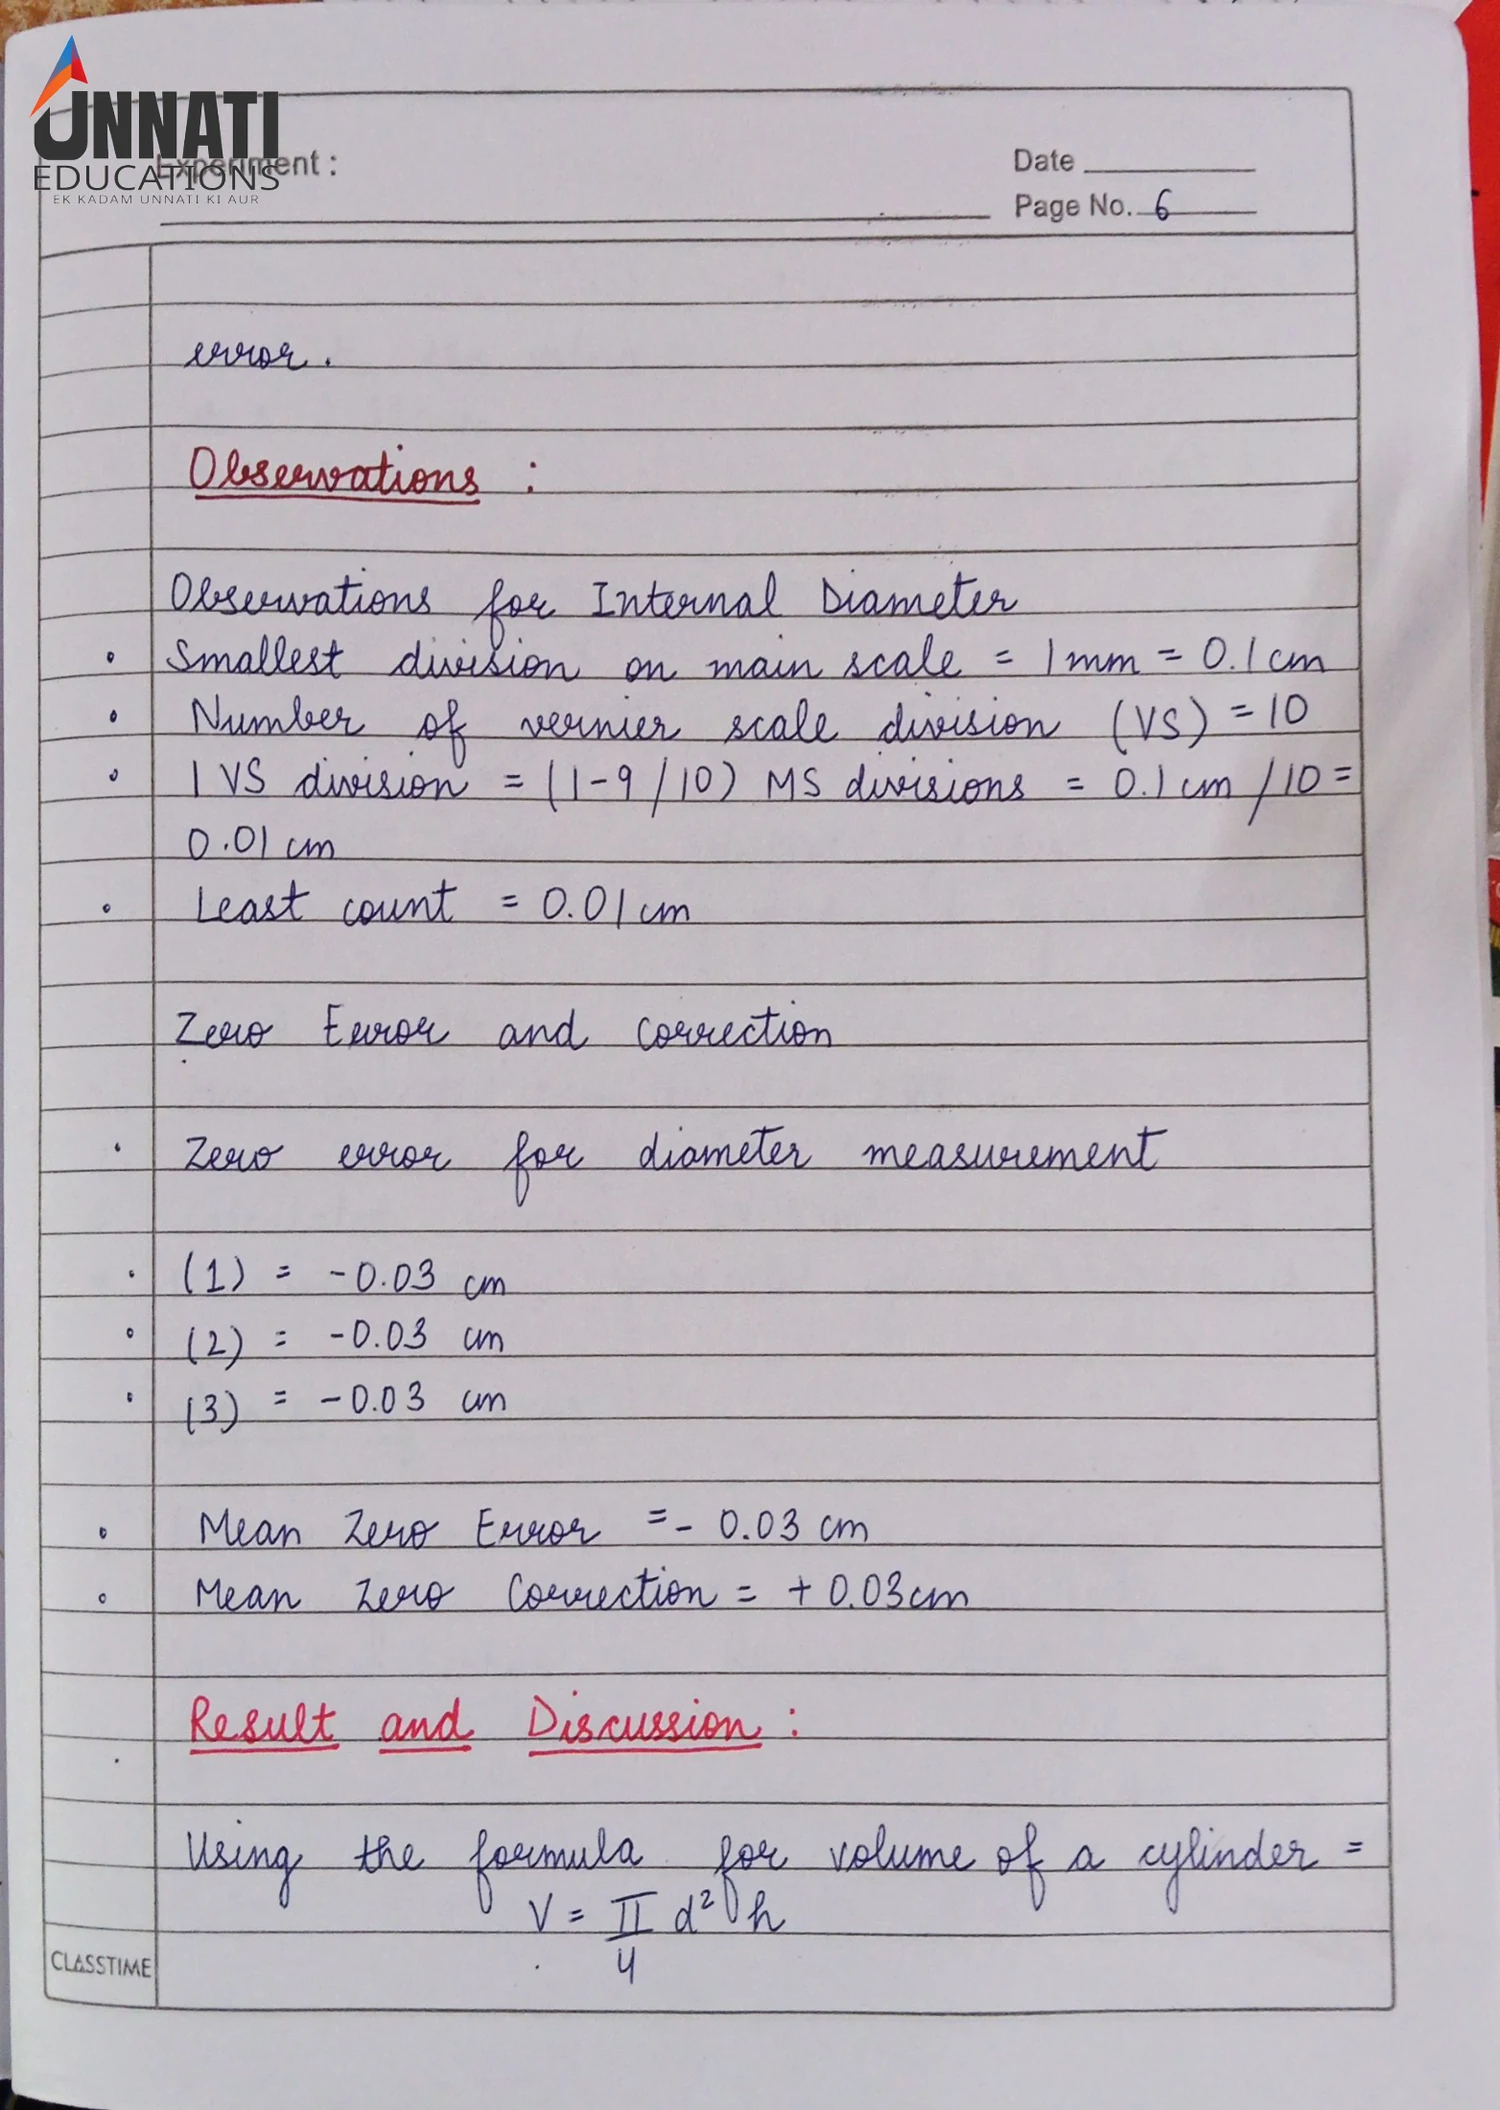 UNNATI
EDUCATIONS
EK KADAM UNNATI KI AUR
Experiment :
Date
Page No. 6
error.
Observations :
Observations for Internal Diameter
Smallest division on main scale = 1mm = 0.1 cm
Number of vernier scale division (VS) = 10
1 VS division = (1-9/10) MS divisions = 0.1 cm /10 =
0.01 cm
Least count = 0.01 cm
Zero Error and correction
Zero error for diameter measurement
(1) = -0.03 cm
(2) = -0.03 cm
(3) = -0.03 cm
Mean Zero Error = - 0.03 cm
Mean Zero Correction = + 0.03cm
Result and Discussion :
Using the formula for volume of a cylinder =
V = π/4 d² h
CLASSTIME